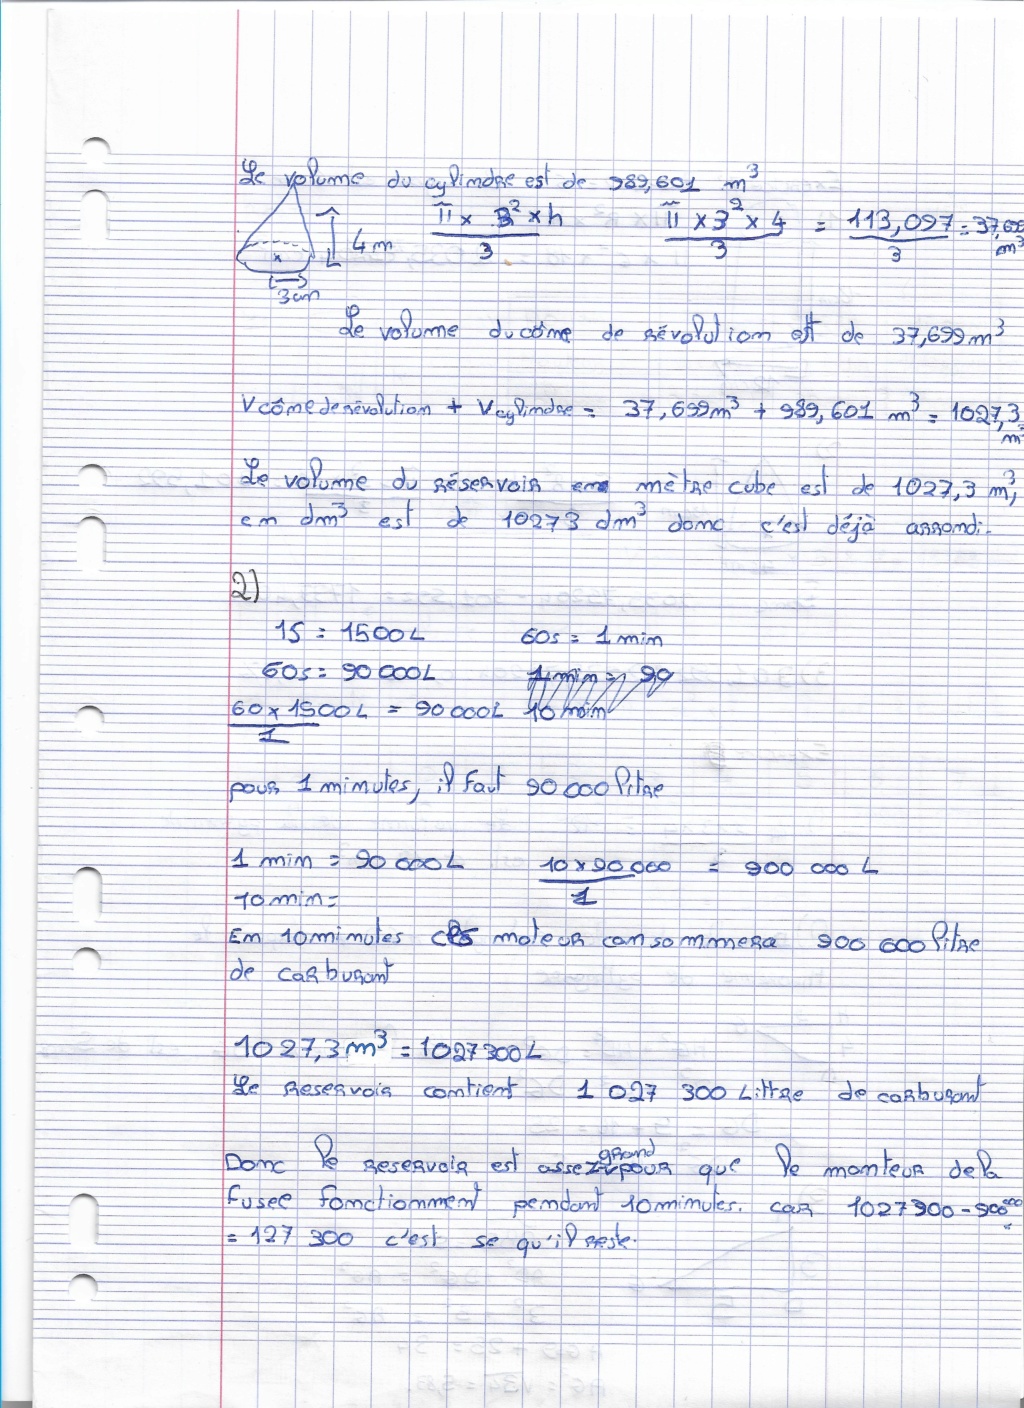 Le volume du cylindre est de 989,601 m³
4 m
3 cm
π × 3² × h / 3
π × 3² × 4 / 3 = 113,097 / 3 = 37,699 m³
Le volume du cône de révolution est de 37,699 m³
V cône de révolution + V cylindre = 37,699 m³ + 989,601 m³ = 1027,3 m³
Le volume du réservoir en mètre cube est de 1027,3 m³,
en dm³ est de 10273 dm³ donc c'est déjà arrondi.
2)
1S = 1500L 60s = 1 min
60s = 90 000L 1 min = 90
60 × 1500L / 1 = 90 000L 10 min
pour 1 minutes, il faut 90 000 litre
1 min = 90 000L 10 × 90 000 / 1 = 900 000 L
10 min =
En 10 minutes moteur consommera 900 000 litre
de carburant
1027,3 m³ = 1027300L
Le reservoir contient 1 027 300 Littre de carburant
Donc le reservoir est assez grand pour que le monteur de la
fusee fonctionnment pendant 10 minutes. car 1027300 - 900 000
= 127 300 c'est se qu'il reste.